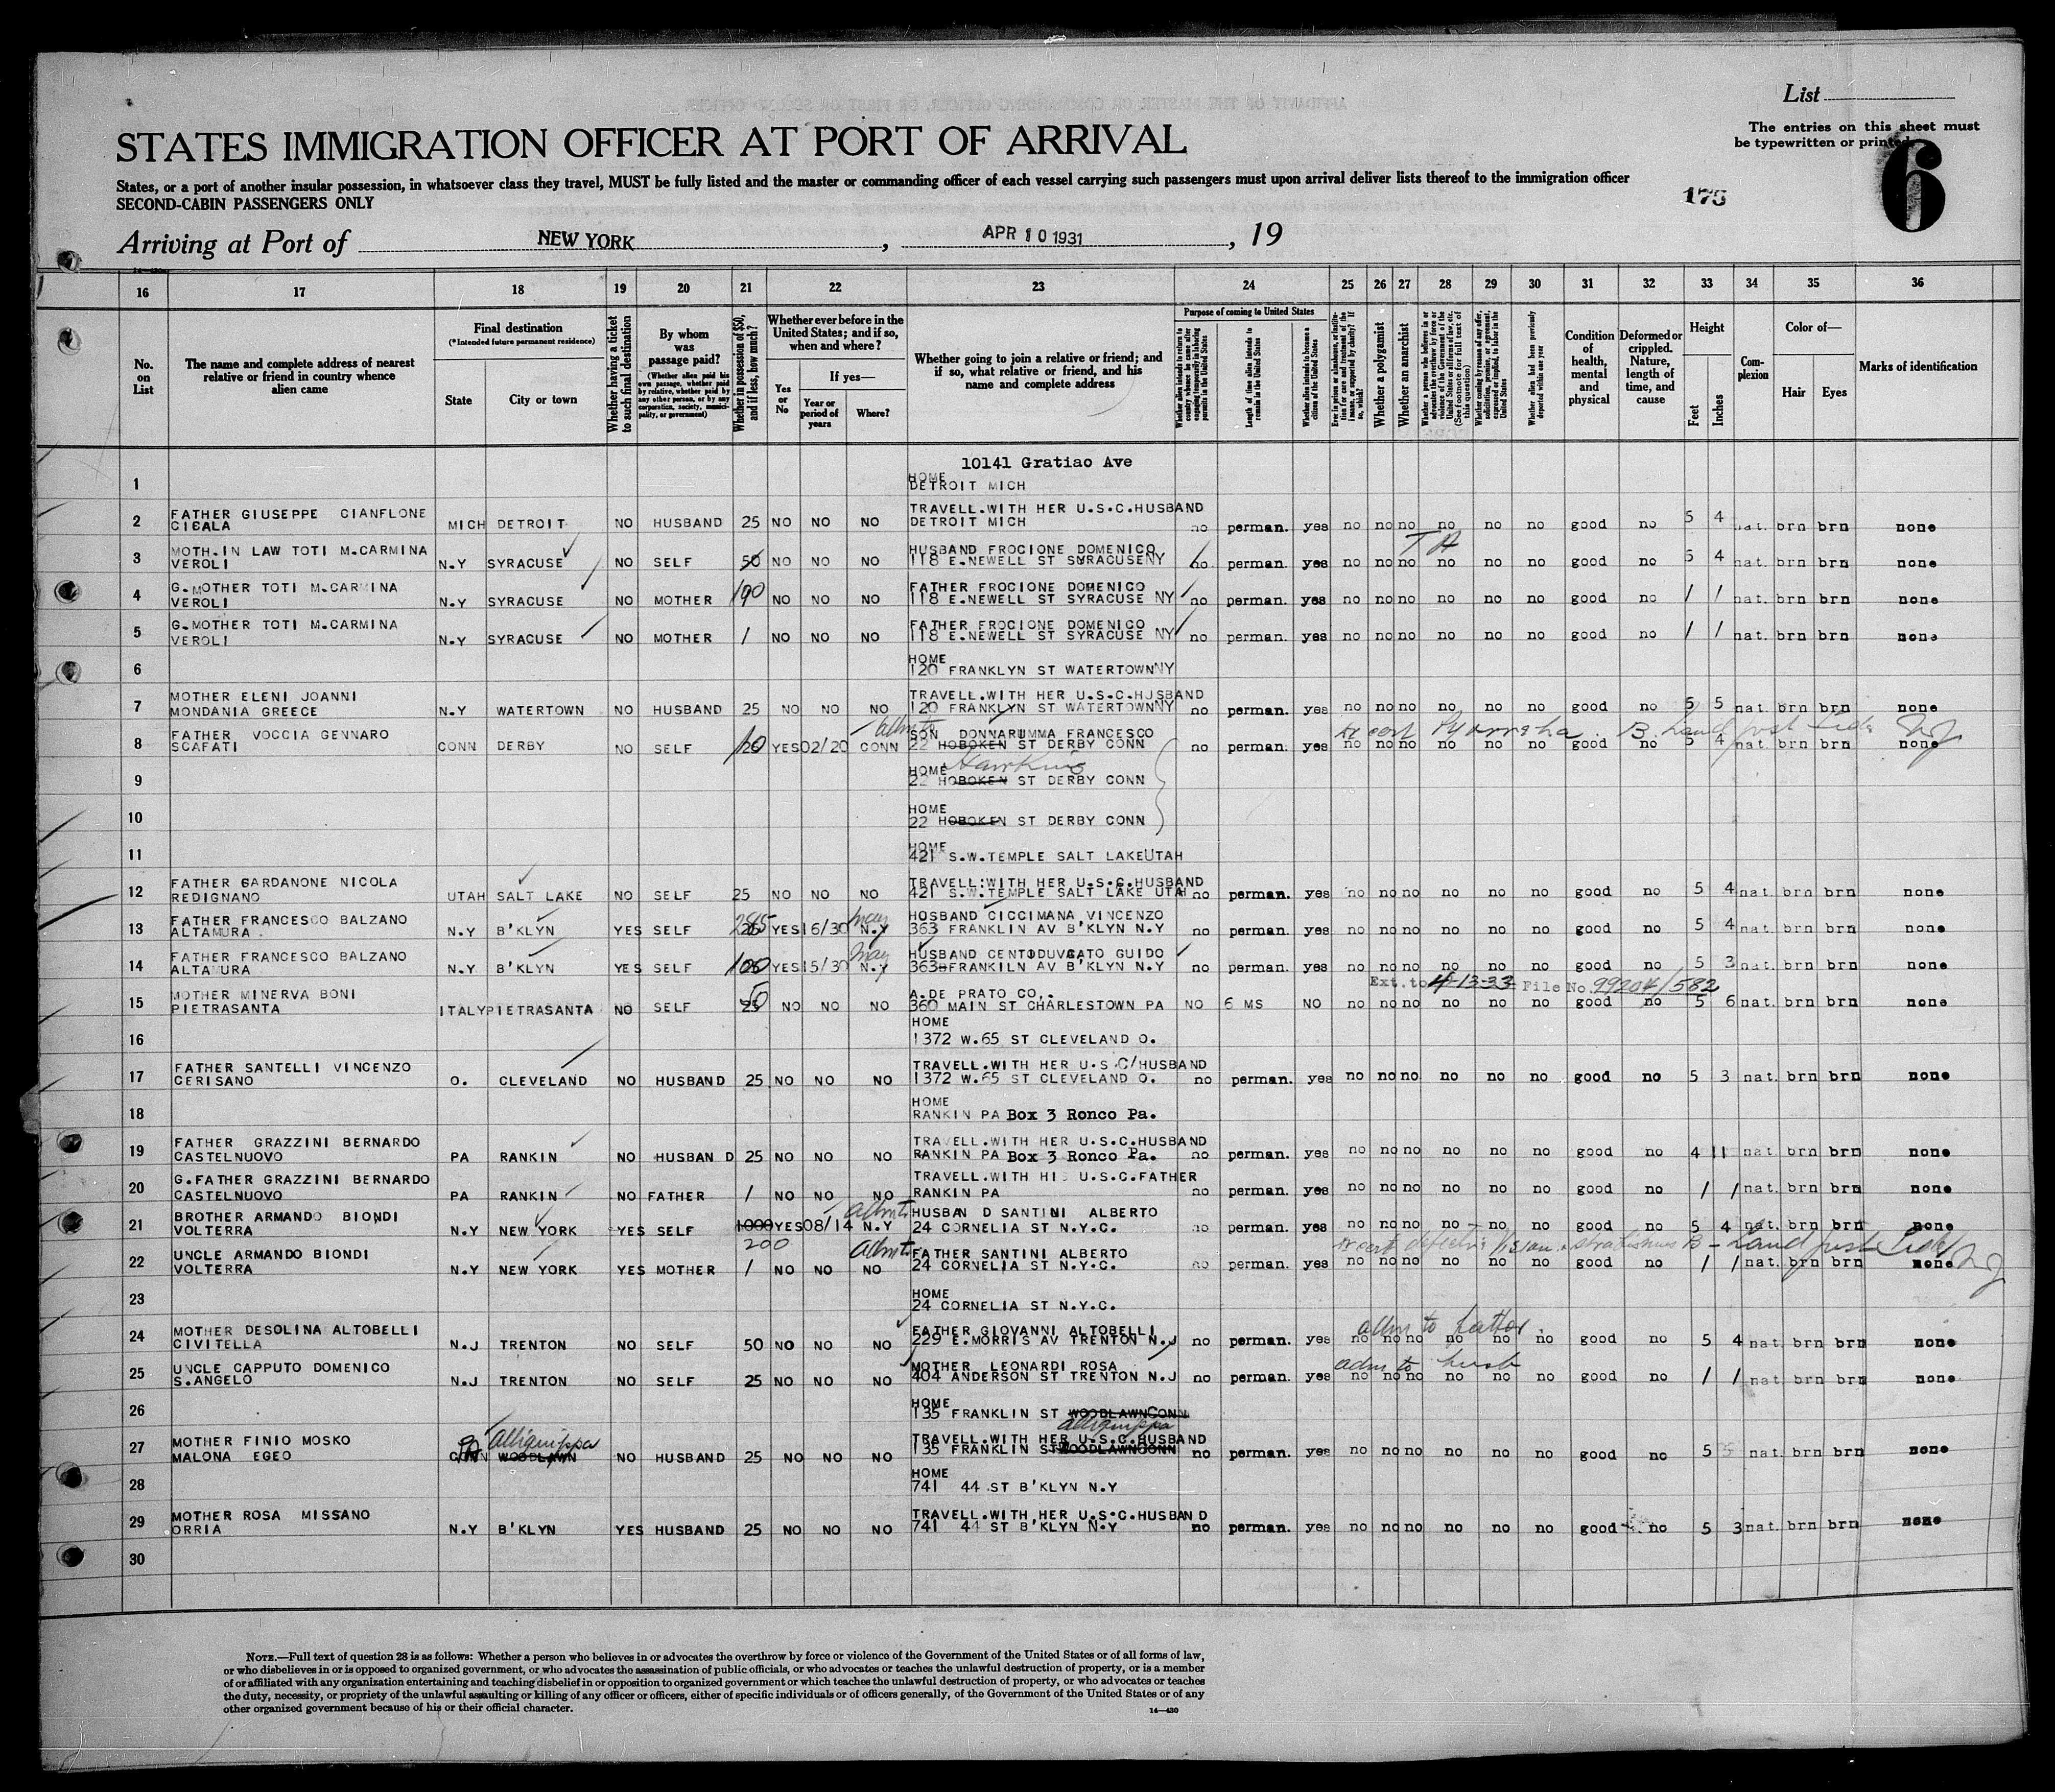 List
The entries on this sheet must
be typewritten or printed.
6
175
STATES IMMIGRATION OFFICER AT PORT OF ARRIVAL
States, or a port of another insular possession, in whatsoever class they travel, MUST be fully listed and the master or commanding officer of each vessel carrying such passengers must upon arrival deliver lists thereof to the immigration officer
SECOND-CABIN PASSENGERS ONLY
Arriving at Port of NEW YORK, APR 10 1931, 19
16 17 18 19 20 21 22 23 24 25 26 27 28 29 30 31 32 33 34 35 36
No. on List
The name and complete address of nearest relative or friend in country whence alien came
Final destination (*Intended future permanent residence)
State
City or town
Whether having a ticket to such final destination
By whom was passage paid? (Whether alien paid his own passage, whether paid by relative, whether paid by any other person, or by any corporation, society, municipality, or government)
Whether in possession of $50, and if less, how much?
Whether ever before in the United States; and if so, when and where?
Yes or No
If yes—
Year or period of years
Where?
Whether going to join a relative or friend; and if so, what relative or friend, and his name and complete address
Purpose of coming to United States
Length of time alien intends to remain in the United States
Whether alien intends to become a citizen of the United States
Whether a polygamist
Whether an anarchist
Whether alien had been previously deported within one year
Condition of health, mental and physical
Deformed or crippled. Nature, length of time, and cause
Height
Feet
Inches
Complexion
Color of—
Hair
Eyes
Marks of identification
10141 Gratiao Ave
1 HOME
DETROIT MICH
FATHER GIUSEPPE CIANFLONE TRAVELL.WITH HER U.S.C.HUSBAND
2 CICALA MICH DETROIT NO HUSBAND 25 NO NO NO DETROIT MICH no perman. yes no no no no no no good no 5 4 nat. brn brn none
MOTH.IN LAW TOTI M.CARMINA HUSBAND FROCIONE DOMENICO
3 VEROLI N.Y SYRACUSE NO SELF 50 NO NO NO 118 E.NEWELL ST SYRACUSE NY no perman. yes no no no no no no good no 5 4 nat. brn brn none
G.MOTHER TOTI M.CARMINA FATHER FROCIONE DOMENICO
4 VEROLI N.Y SYRACUSE NO MOTHER NO NO NO 118 E.NEWELL ST SYRACUSE NY no perman. yes no no no no no no good no / / nat. brn brn none
G.MOTHER TOTI M.CARMINA FATHER FROCIONE DOMENICO
5 VEROLI N.Y SYRACUSE NO MOTHER / NO NO NO 118 E.NEWELL ST SYRACUSE NY no perman. yes no no no no no no good no / / nat. brn brn none
6 HOME
120 FRANKLYN ST WATERTOWN NY
MOTHER ELENI JOANNI TRAVELL.WITH HER U.S.C.HUSBAND
7 MONDANIA GREECE N.Y WATERTOWN NO HUSBAND 25 NO NO NO 120 FRANKLYN ST WATERTOWN NY no perman. yes no no no no no no good no 5 5 nat. brn brn none
FATHER VOCCIA GENNARO SON DONNARUMMA FRANCESCO
8 SCAFATI CONN DERBY NO SELF YES 02/20 CONN 22 HOBOKEN ST DERBY CONN no perman. yes no no no no no no good no 5 4 nat. brn brn none
Hawkins
9 HOME
22 HOBOKEN ST DERBY CONN
10 HOME
22 HOBOKEN ST DERBY CONN
11 HOME
421 S.W.TEMPLE SALT LAKE UTAH
FATHER GARDANONE NICOLA TRAVELL.WITH HER U.S.C.HUSBAND
12 REDIGNANO UTAH SALT LAKE NO SELF 25 NO NO NO 421 S.W.TEMPLE SALT LAKE UTAH no perman. yes no no no no no no good no 5 4 nat. brn brn none
FATHER FRANCESCO BALZANO HOSBAND CICCIMANA VINCENZO
13 ALTAMURA N.Y B'KLYN YES SELF YES 16/30 N.Y 363 FRANKLIN AV B'KLYN N.Y no perman. yes no no no no no no good no 5 4 nat. brn brn none
FATHER FRANCESCO BALZANO HUSBAND CENTODUCATO GUIDO
14 ALTAMURA N.Y B'KLYN YES SELF 100 YES 15/30 N.Y 363 FRANKILN AV B'KLYN N.Y no perman. yes no no no no no no good no 5 3 nat. brn brn none
Ext. to 4-13-33 File No. 99204/582
MOTHER MINERVA BONI A.DE PRATO CO,.
15 PIETRASANTA ITALY PIETRASANTA NO SELF 50 NO NO NO 360 MAIN ST CHARLESTOWN PA NO 6 MS NO no no no no no no good no 5 6 nat. brn brn none
16 HOME
1372 W.65 ST CLEVELAND O.
FATHER SANTELLI VINCENZO TRAVELL.WITH HER U.S.C/HUSBAND
17 CERISANO O. CLEVELAND NO HUSBAND 25 NO NO NO 1372 W.65 ST CLEVELAND O. no perman. yes no no no no no no good no 5 3 nat. brn brn none
18 HOME
RANKIN PA Box 3 Ronco Pa.
FATHER GRAZZINI BERNARDO TRAVELL.WITH HER U.S.C.HUSBAND
19 CASTELNUOVO PA RANKIN NO HUSBAN D 25 NO NO NO RANKIN PA Box 3 Ronco Pa. no perman. yes no no no no no no good no 4 11 nat. brn brn none
G.FATHER GRAZZINI BERNARDO TRAVELL.WITH HIS U.S.C.FATHER
20 CASTELNUOVO PA RANKIN NO FATHER / NO NO NO RANKIN PA no perman. yes no no no no no no good no / / nat. brn brn none
BROTHER ARMANDO BIONDI HUSBAN D SANTINI ALBERTO
21 VOLTERRA N.Y NEW YORK YES SELF 1000 YES 08/14 N.Y 24 CORNELIA ST N.Y.C. no perman. yes no no no no no no good no 5 4 nat. brn brn none
200
UNCLE ARMANDO BIONDI FATHER SANTINI ALBERTO
22 VOLTERRA N.Y NEW YORK YES MOTHER / NO NO NO 24 CORNELIA ST N.Y.C. no perman. yes no no no no no no good no / / nat. brn brn none
23 HOME
24 CORNELIA ST N.Y.C.
adm to father
MOTHER DESOLINA ALTOBELLI FATHER GIOVANNI ALTOBELLI
24 CIVITELLA N.J TRENTON NO SELF 50 NO NO NO 229 E.MORRIS AV TRENTON N.J no perman. yes no no no no no no good no 5 4 nat. brn brn none
adm to husb
UNCLE CAPPUTO DOMENICO MOTHER LEONARDI ROSA
25 S.ANGELO N.J TRENTON NO SELF 25 NO NO NO 404 ANDERSON ST TRENTON N.J no perman. yes no no no no no no good no / / nat. brn brn none
26 HOME
135 FRANKLIN ST WOODLAWN CONN
Alliquippa
MOTHER FINIO MOSKO Alliquippa TRAVELL.WITH HER U.S.C.HUSBAND
27 MALONA EGEO PA CONN WOODLAWN NO HUSBAND 25 NO NO NO 135 FRANKLIN ST WOODLAWN CONN no perman. yes no no no no no no good no 5 5 nat. brn brn none
28 HOME
741 44 ST B'KLYN N.Y
MOTHER ROSA MISSANO TRAVELL.WITH HER U.S.C.HUSBAN D
29 ORRIA N.Y B'KLYN YES HUSBAND 25 NO NO NO 741 44 ST B'KLYN N.Y no perman. yes no no no no no no good no 5 3 nat. brn brn none
30
NOTE.—Full text of question 28 is as follows: Whether a person who believes in or advocates the overthrow by force or violence of the Government of the United States or of all forms of law,
or who disbelieves in or is opposed to organized government, or who advocates the assassination of public officials, or who advocates or teaches the unlawful destruction of property, or is a member
of or affiliated with any organization entertaining and teaching disbelief in or opposition to organized government or which teaches the unlawful destruction of property, or who advocates or teaches
the duty, necessity, or propriety of the unlawful assaulting or killing of any officer or officers, either of specific individuals or of officers generally, of the Government of the United States or of any
other organized government because of his or their official character.
14—430